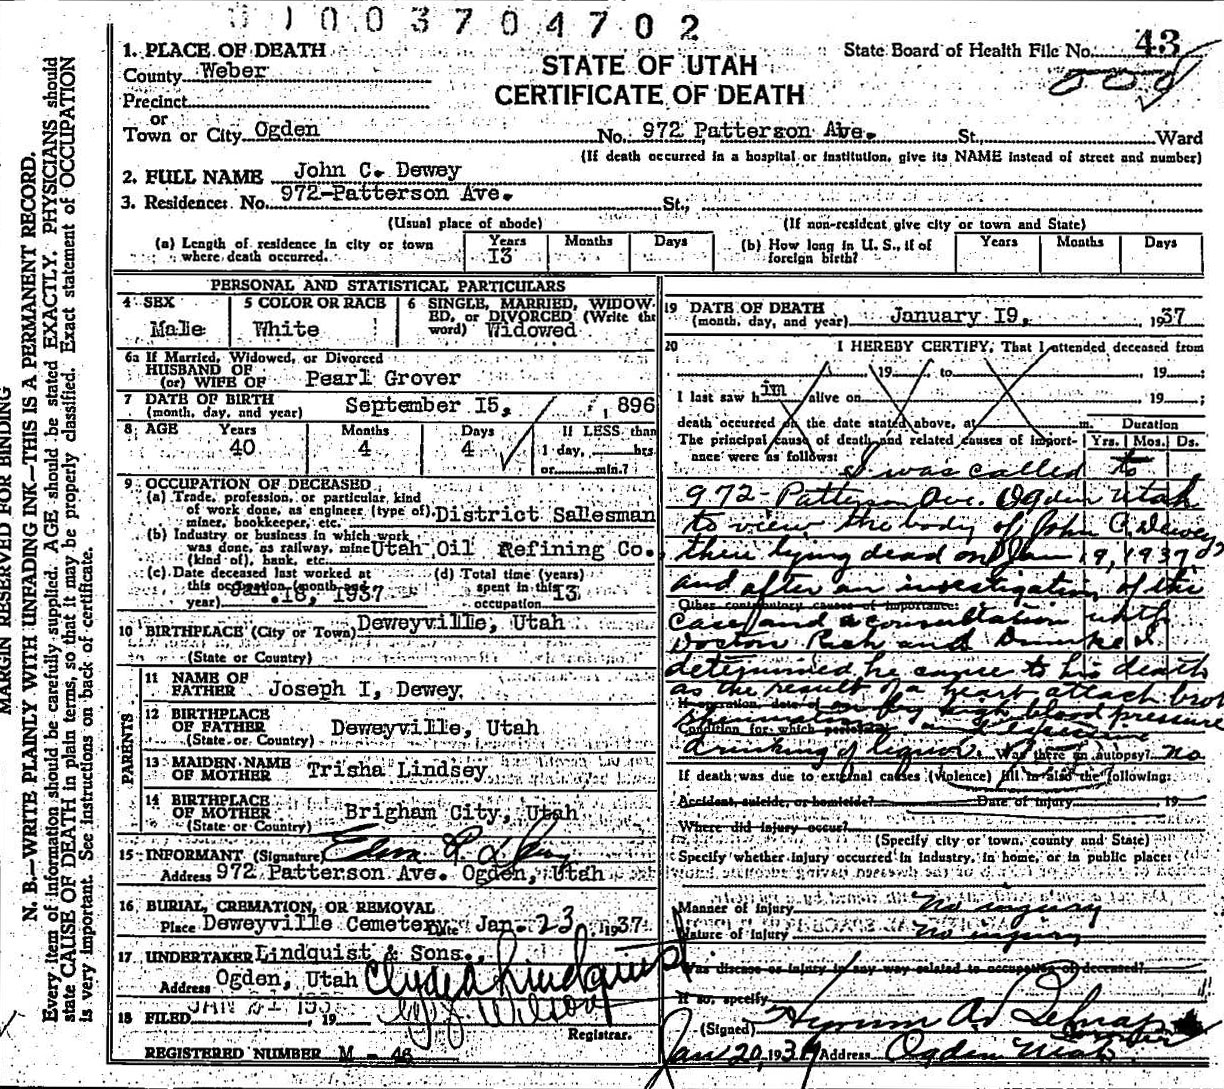 0 1 0 0 3 7 0 4 7 0 2
STATE OF UTAH
CERTIFICATE OF DEATH
State Board of Health File No. 43
1. PLACE OF DEATH
County Weber
Precinct
or
Town or City Ogden No. 972 Patterson Ave. St. Ward
(If death occurred in a hospital or institution, give its NAME instead of street and number)
2. FULL NAME John C. Dewey
3. Residence: No. 972-Patterson Ave. St.,
(Usual place of abode) (If non-resident give city or town and State)
(a) Length of residence in city or town where death occurred. Years I3 Months Days
(b) How long in U. S., if of foreign birth? Years Months Days
PERSONAL AND STATISTICAL PARTICULARS
4 SEX Male
5 COLOR OR RACE White
6 SINGLE, MARRIED, WIDOWED, or DIVORCED (Write the word) Widowed
6a If Married, Widowed, or Divorced
HUSBAND OF
(or) WIFE OF Pearl Grover
7 DATE OF BIRTH
(month, day, and year) September I5, , 896
8 AGE Years 40 Months 4 Days 4 If LESS than
1 day, hrs.
or min.?
9 OCCUPATION OF DECEASED
(a) Trade, profession, or particular kind
of work done, as engineer (type of),
miner, bookkeeper, etc. District Salesman
(b) Industry or business in which work
was done, as railway, mine
(kind of), bank, etc. Utah Oil Refining Co.
(c) Date deceased last worked at
this occupation (month and
year) Jan. 18, 1937
(d) Total time (years)
spent in this
occupation I3
10 BIRTHPLACE (City or Town) Deweyville, Utah
(State or Country)
PARENTS
11 NAME OF
FATHER Joseph I, Dewey
12 BIRTHPLACE
OF FATHER Deweyville, Utah
(State or Country)
13 MAIDEN NAME
OF MOTHER Trisha Lindsey
14 BIRTHPLACE
OF MOTHER Brigham City, Utah
(State or Country)
15 INFORMANT (Signature)
Address 972 Patterson Ave. Ogden, Utah
16 BURIAL, CREMATION, OR REMOVAL
Place Deweyville Cemetery Date Jan. 23, 1937
17 UNDERTAKER Lindquist & Sons.,
Address Ogden, Utah Clyde Lindquist
18 FILED JAN 21 193 , 19 Wilson
Registrar.
REGISTERED NUMBER M - 46
19 DATE OF DEATH
(month, day, and year) January I9, , 1937
20 I HEREBY CERTIFY, That I attended deceased from
, 19 , to , 19 ;
I last saw him alive on , 19 ;
death occurred on the date stated above, at m. Duration
The principal cause of death and related causes of importance were as follows: Yrs. Mos. Ds.
I was called to
972 - Patterson Ave. Ogden Utah
to view the body of John C. Dewey
their lying dead on Jan 19, 1937
and after an investigation of the
Other contributory causes of importance:
case and a consultation with
Doctors Rich and I
determined he came to his death
as the result of a heart attack
If operation, date of
high blood pressure
Condition for which performed
drinking of liquor. Was there an autopsy? no
If death was due to external causes (violence) fill in also the following:
Accident, suicide, or homicide? Date of injury 19
Where did injury occur?
(Specify city or town, county and State)
Specify whether injury occurred in industry, in home, or in public place:
Manner of Injury No injury
Nature of Injury No injury
Was disease or injury in any way related to occupation of deceased?
If so, specify
(Signed) Hyrum
Jan 20, 1937 Address Ogden Utah
MARGIN RESERVED FOR BINDING
N. B.—WRITE PLAINLY WITH UNFADING INK—THIS IS A PERMANENT RECORD.
Every item of information should be carefully supplied. AGE should be stated EXACTLY. PHYSICIANS should
state CAUSE OF DEATH in plain terms, so that it may be properly classified. Exact statement of OCCUPATION
is very important. See instructions on back of certificate.